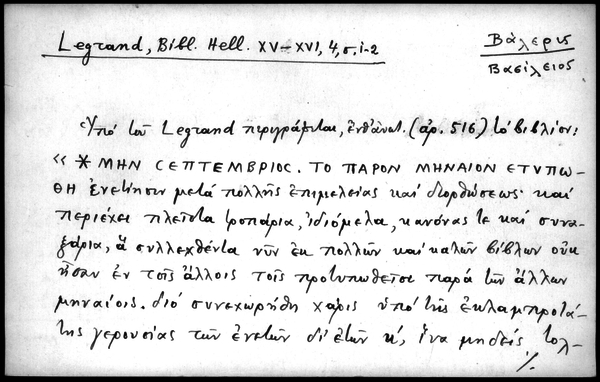 Legrand, Bibl. Hell. XV–XVI, 4, σ. 1-2
Βάλερις
Βασίλειος
Ὑπό τοῦ Legrand περιγράφεται, ἐνθ' ἀνωτ. (ἀρ. 516) τό βιβλίον:
« * ΜΗΝ CΕΠΤΕΜΒΡΙΟC. ΤΟ ΠΑΡΟΝ ΜΗΝΑΙΟΝ ΕΤΥΠΩ-
ΘΗ ἐνετίησιν μετά πολλῆς ἐπιμελείας καί διορθώσεως· καί
περιέχει πλεῖστα τροπάρια, ἰδιόμελα, κανόνας τε καί συνα-
ξάρια, ἅ συλλεχθέντα νῦν ἐκ πολλῶν καί καλῶν βίβλων οὐκ
ἦσαν ἐν τοῖς ἄλλοις τοῖς προτυπωθεῖσι παρά τῶν ἄλλων
μηναίοις. διό συνεχωρήθη χάρις ὑπό τῆς ἐκλαμπροτά-
της γερουσίας τῶν ἐνετῶν δι' ἐτῶν κ', ἵνα μηδείς τολ-
./.